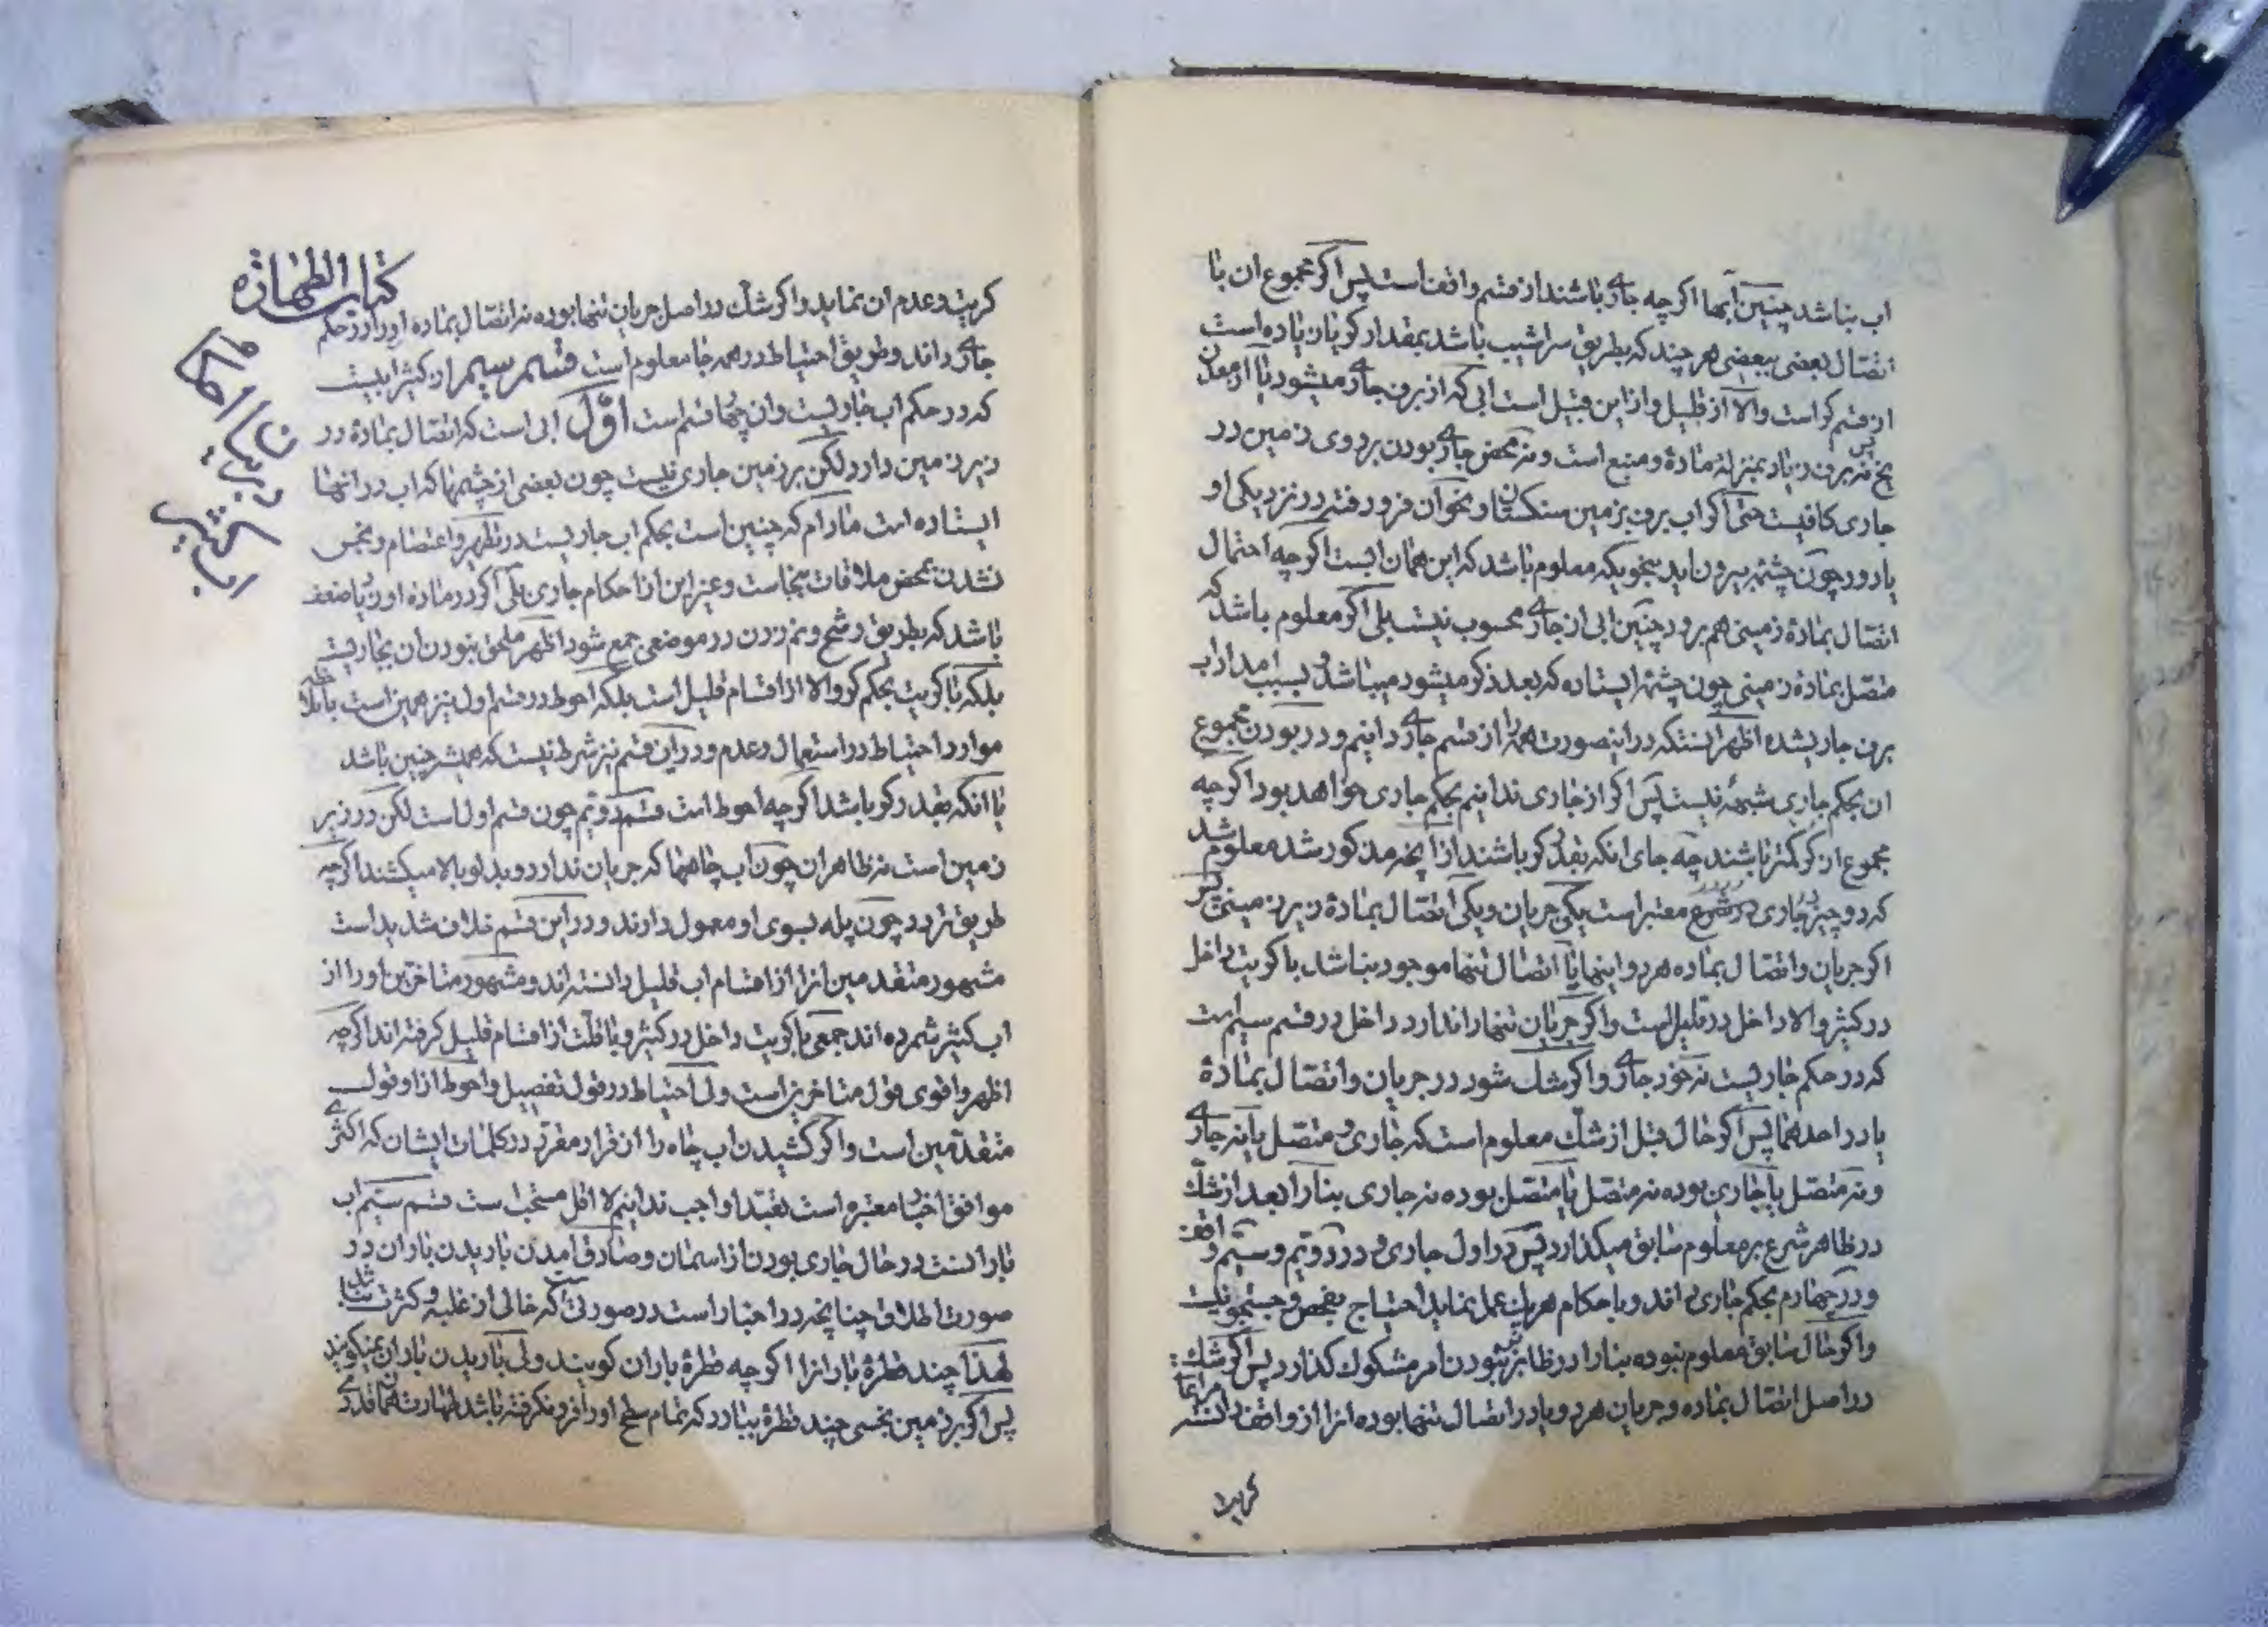 اب نباشد چنین آبها اگر چه جاری باشند از قسم واقف است پس اگر مجموع ان با
اتصال بعضی ببعضی هر چند که بطریق سراشیب باشد بمقدار کر یا زیاده است
از قسم کر است والا از قلیل و از این قبیل است ابی که از برف جاری میشود یا از معدن
یخ نه برف زیاد بمنزله ماده و منبع است و نه محض جاری بودن بر روی زمین در
جاری کافیست حتی اگر اب برف بزمین سنکستان و نحو آن فرو رفته در نزدیکی او
یا دور چون چشمه بیرون اید بنحویکه معلوم باشد که این همان ابست اگر چه احتمال
اتصال بماده زمینی هم برود چنین ابی از جاری محسوب نیست بلی اگر معلوم باشد که
متصل بماده زمینی چون چشمه ایستاده که بعد ذکر میشود میباشد و بسبب امداد اب
برف جاری شده اظهر انستکه در اینصورت همه را از قسم جاری دانیم و در بودن مجموع
ان بحکم جاری شبهه نیست پس اگر از جاری ندانیم بحکم جاری خواهد بود اگر چه
مجموع از کر کمتر باشند چه جای انکه بقدر کر باشند از انچه مذکور شد معلوم شد
که دو چیز در جاری در شرع معتبر است یکی جریان و یکی اتصال بماده زیر زمینی پس
اگر جریان و اتصال بماده هر دو اینها یا اتصال تنها موجود نباشد با کریت داخل
در کثیر والا داخل در قلیل است و اگر جریان تنها را ندارد داخل در قسم سیم است
که در حکم جاریست نه خود جاری و اگر شک شود در جریان و اتصال بماده
یا در احدهما پس اگر حال قبل از شک معلوم است که جاری و متصل یا نه جاری
و نه متصل یا جاری بوده نه متصل یا متصل بوده نه جاری بنا را بعد از شک
در ظاهر شرع بر معلوم سابق میکذارد پس در اول جاری و در دویم و سیم واقف
و در چهارم بحکم جاری داند و باحکام هر یک عمل نماید احتیاج بفحص و جستجو نیست
و اگر حال سابق معلوم نبوده بنا را در ظاهر بر نبودن امر مشکوک کذارد پس اگر شک
در اصل اتصال بماده و جریان هر دو یا در اتصال تنها بوده انرا از واقف دانسته
کریت
کتاب الطهارة
کریت و عدم ان نماید و اگر شک در اصل جریان تنها بوده نه اتصال بماده او را در حکم
جاری داند و طریق احتیاط در همه جا معلوم است قسم سیم از کثیر ابیست
که در حکم اب جاریست و ان چهار قسم است اوّل ابی است که اتصال بماده در
زیر زمین دارد لکن بر زمین جاری نیست چون بعضی از چشمها که اب در انها
ایستاده است مادام که چنین است بحکم اب جاریست در تطهیر و اعتصام و نجس
نشدن بمحض ملاقات نجاست و غیر این از احکام جاری بلی اگر در ماده او ضعف
باشد که بطریق رشح و نم زدن در موضعی جمع شود اظهر ملحق نبودن ان بجاریست
بلکه با کریت بحکم کر والا از اقسام قلیل است بلکه احوط در قسم اول نیز همین است
موارد احتیاط در استعمال و عدم و در این قسم نیز شرط نیست که همیشه چنین باشد
یا انکه بقدر کر باشد اگر چه احوط است قسم دویم چون قسم اول است لکن در زیر
زمین است نه ظاهر ان چون اب چاهها که جریان ندارد و بدلو بالا میکشند اگر چه
طریق تردد چون پله بسوی او معمول دارند و در این قسم خلاف شدید است
مشهور متقدمین انرا از اقسام اب قلیل دانسته اند و مشهور متاخرین او را از
اب کثیر شمرده اند جمعی با کریت داخل در کثیر و با قلت از اقسام قلیل کرفته اند اگر چه
اظهر و اقوی قول متاخرین است ولی احتیاط در قول تفصیل و احوط از او قول
متقدمین است و اگر کشیدن اب چاه را از قرار مقرر در کلمات ایشان که اکثری
موافق اخبار معتبره است تعبدا واجب ندانیم لا اقل مستحب است قسم سیم اب
بارانست در حال جاری بودن از اسمان و صادق امدن باریدن باران در
صورت اطلاق چنانچه در اخبار است در صورتی که خالی از غلبه و کثرت نباشد
لهذا چند قطره بارانرا اگر چه قطره باران کویند ولی باریدن باران نمیکویند
پس اگر بر زمین نجسی چند قطره ببارد که تمام سطح او را فرو نکرفته باشد طهارت همانقدری